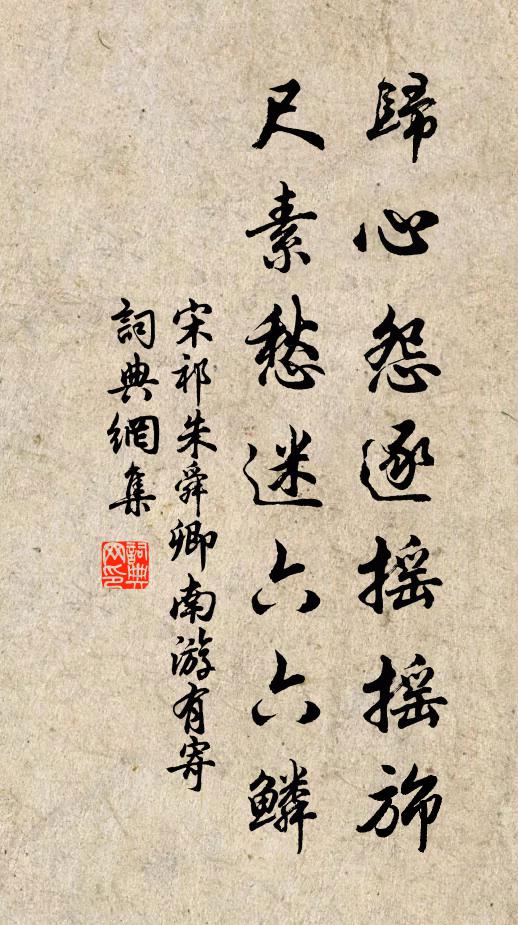 歸心怨逐摇摇斾
尺素愁迷六六鱗
宋祁朱舜卿南游有寄
詞典網集
詞典网印